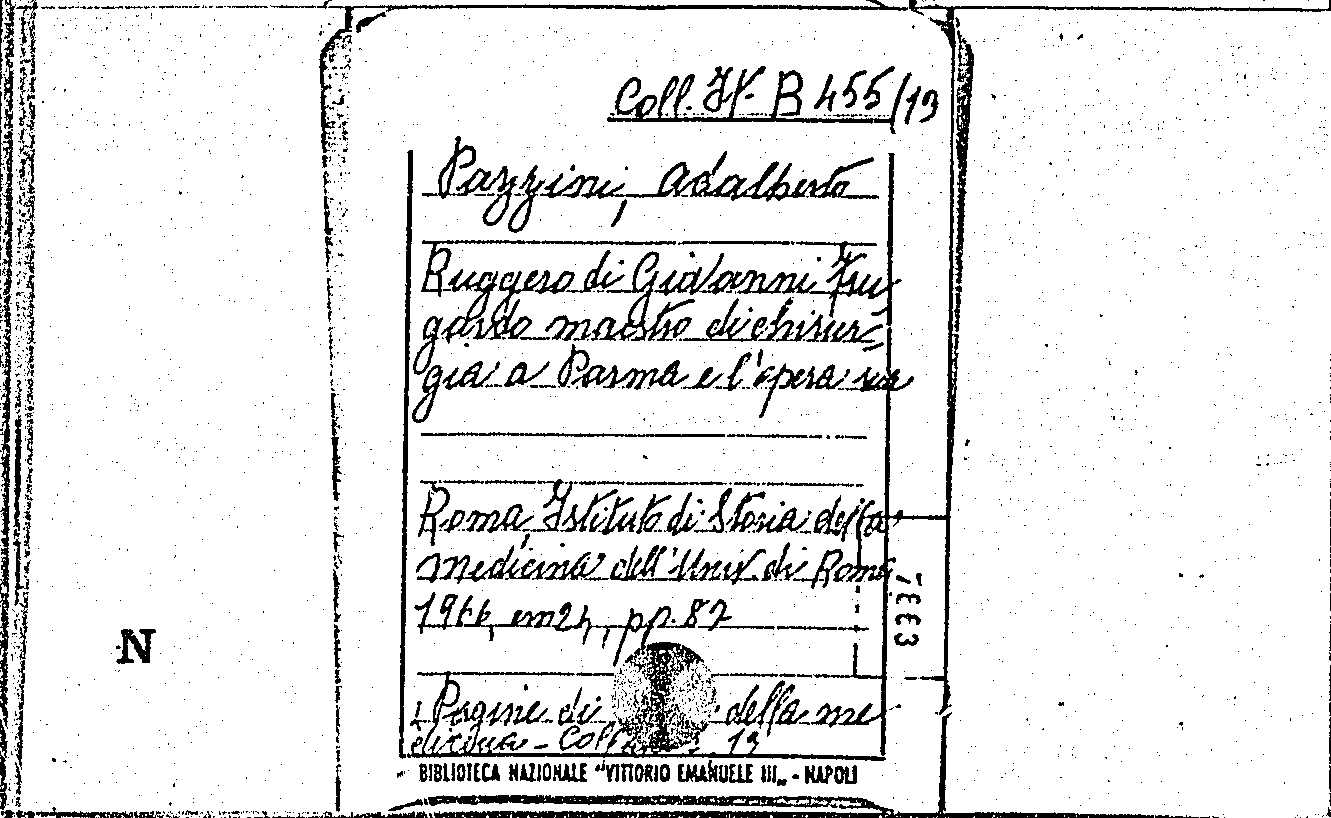 Coll. IV. B 455/13
Pazzini, Adalberto
Ruggero di Giovanni Fru
gardo maestro di chirur=
gia a Parma e l'opera sua
Roma, Istituto di Storia della
medicina dell'Univ. di Roma
1966, cm 24, pp. 87
7333
N
(Pagine di della me
dicina - 13
BIBLIOTECA NAZIONALE "VITTORIO EMANUELE III„ - NAPOLI